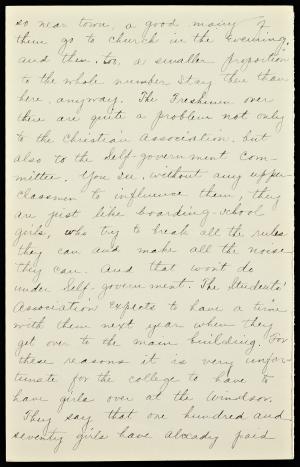 so near town, a good many of
them go to church in the evening,
and then, too, a smaller proportion
to the whole number stay there than
here, anyway. The Freshmen over
there are quite a problem not only
to the Christian Association, but
also to the Self-government Com-
mittee. You see, without any upper
classmen to influence them, they
are just like boarding-school
girls, who try to break all the rules
they can and make all the noise
they can. And that won't do
under Self-government. The Students'
Association expects to have a time
with them next year when they
get over to the main building. For
these reasons it is very unfor-
tunate for the college to have to
have girls over at the Windsor.
They say that one hundred and
seventy girls have already paid